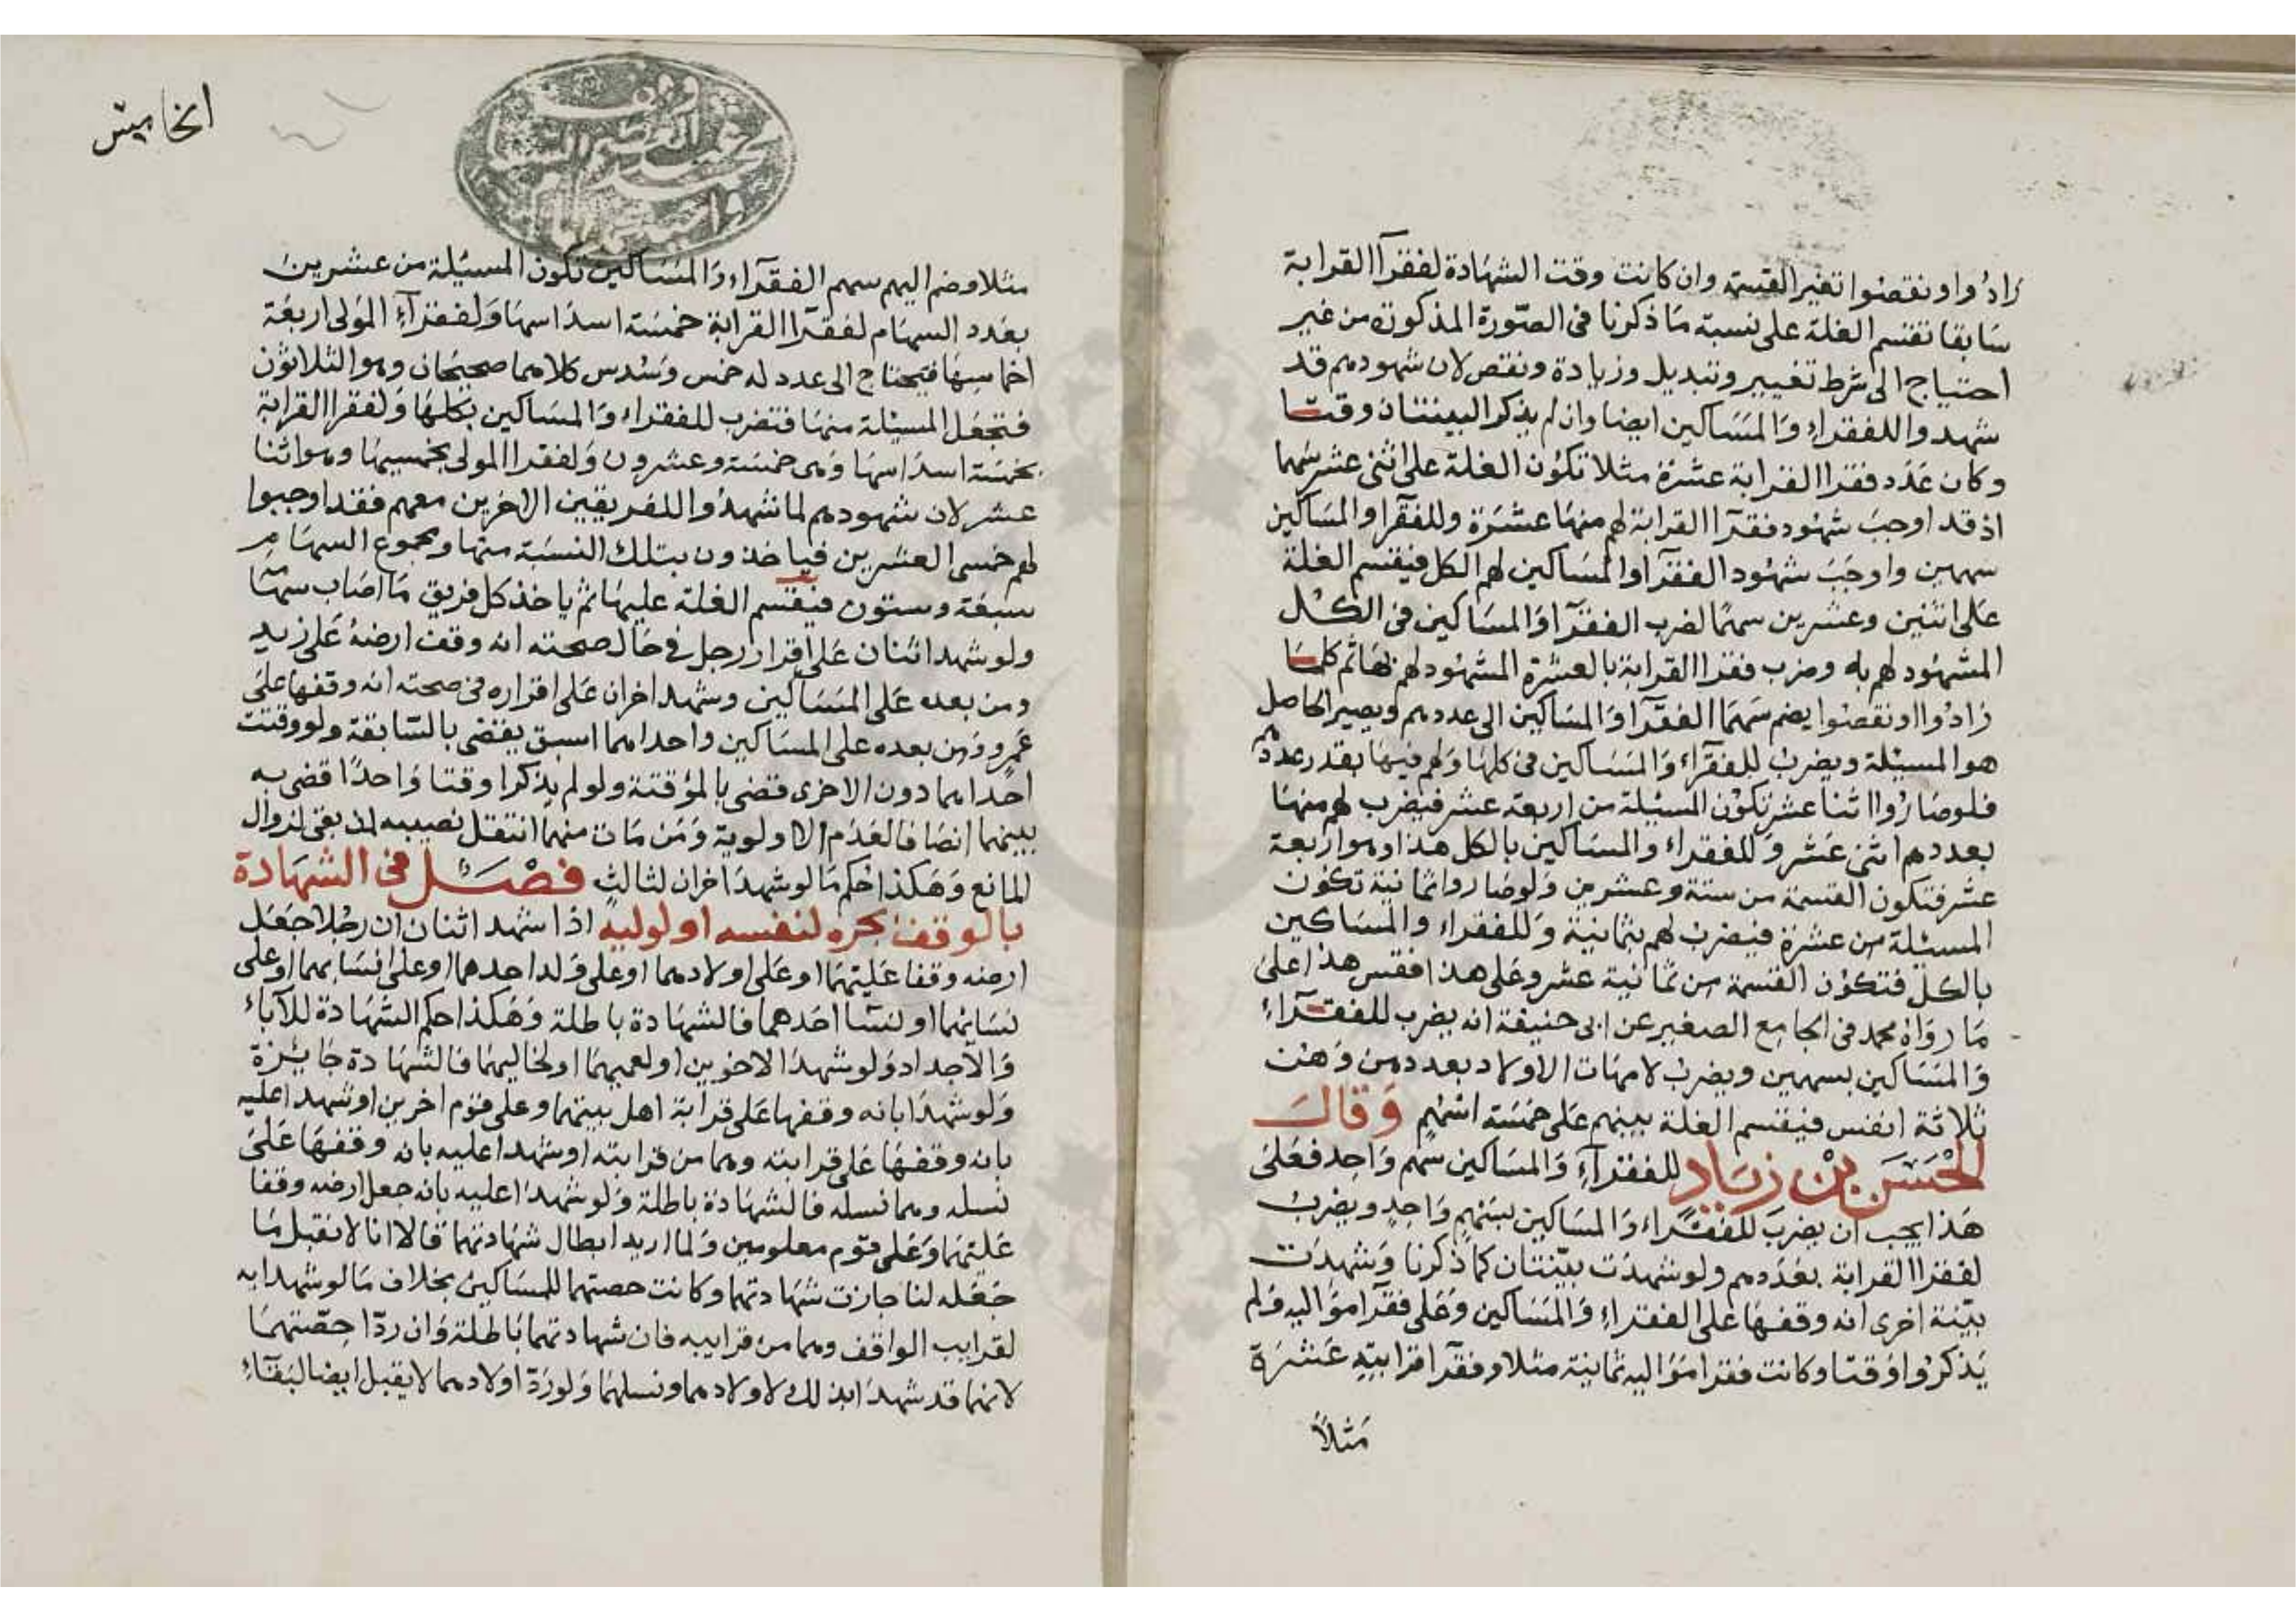 زادوا او نقصوا تغير القسمة وان كانت وقت الشهادة لفقرآا القرابة
سابقا تقسم الغلة على نسبة ما ذكرنا فى الصورة المذكورة من غير
احتياج الى شرط تغيير وتبديل وزيادة ونقص لان شهودهم قد
شهدوا للفقراء والمساكين ايضا وان لم يذكر البينتان وقتا
وكان عدد فقرا القرابة عشرة مثلا تكون الغلة على اثنى عشر سهما
اذ قد اوجب شهود فقرآا القرابة لهم منها عشرة وللفقرا والمساكين
سهمين واوجب شهود الفقرآ والمساكين لهم الكل فيقسم الغلة
على اثنين وعشرين سهما لضرب الفقرآ والمساكين فى الكل
المشهود لهم به وضرب فقرا القرابة بالعشرة المشهود لهم بها ثم كلما
زادوا او نقصوا يضم سهما الفقرآ والمساكين الى عددهم ويصير الحاصل
هو المسئلة ويضرب للفقرآء والمساكين فى كلها ولهم فيها بقدر عددهم
فلو صاروا اثنا عشر تكون المسئلة من اربعة عشر فيضرب لهم منها
بعددهم اثنى عشر وللفقراء والمساكين بالكل هذا وهو اربعة
عشر فتكون القسمة من ستة وعشرين ولو صاروا ثمانية تكون
المسئلة من عشرة فيضرب لهم بثمانية وللفقراء والمساكين
بالكل فتكون القسمة من ثمانية عشر وعلى هذا فقس هذا على
ما رواه محمد فى الجامع الصغير عن ابى حنيفة انه يضرب للفقرآء
والمساكين بسهمين ويضرب لامهات الاولاد بعددهن وهن
ثلاثة انفس فيقسم الغلة بينهم على خمسة اسهم وقال
الحسن بن زياد للفقرآء والمساكين سهم واحد فعلى
هذا يجب ان يضرب للفقراء والمساكين بسهم واحد ويضرب
لفقرا القرابة بعددهم ولو شهدت بينتان كما ذكرنا وشهدت
بينة اخرى انه وقفها على الفقراء والمساكين وعلى فقرآ مواليه ولم
يذكروا وقتا وكانت فقرا مواليه ثمانية مثلا وفقرآ قرابيته عشرة
مثلاً
مثلا وضم اليهم سهم الفقرآء والمساكين تكون المسئلة من عشرين
بعدد السهام لفقرآا القرابة خمسة اسداسها ولفقرآء المولى اربعة
اخماسها فيحتاج الى عدد له خمس وسدس كلاهما صحيحان وهو الثلاثون
فتجعل المسئلة منها فتضرب للفقراء والمساكين بكلها ولفقرا القرابة
بخمسة اسداسها وهى خمسة وعشرون ولفقرا المولى بخمسيها وهو اثنا
عشر لان شهودهم لما شهدوا للفريقين الاخرين معهم فقد اوجبوا
لهم خمسى العشرين فياخذون بتلك النسبة منها ومجموع السهام
سبعة وستون فيقسم الغلة عليها ثم ياخذ كل فريق ما اصاب سهمها
ولو شهد اثنان على اقرار رجل فى حال صحته انه وقف ارضه على زيد
ومن بعده على المساكين وشهد اخران على اقراره فى صحته انه وقفها على
عمرو ومن بعده على المساكين واحداهما اسبق يقضى بالسابقة ولو وقتت
احداهما دون الاخرى قضى بالمؤقتة ولو لم يذكرا وقتا واحدا قضى به
بينهما انصافا لعدم الاولوية ومن مات منهما انتقل نصيبه لمن بقى لزوال
المانع وهكذا حكم ما لو شهد اخران لثالث فصل فى الشهادة
بالوقف بجره لنفسه او لوليه اذا شهد اثنان ان رجلا جعل
ارضه وقفا عليهما او على اولادهما او على ولد احدهما او على انسابهما او على
نسايهما او لنسآ احدهما فالشهادة باطلة وهكذا حكم الشهادة للآباء
والاجداد ولو شهدا لاخويهن او لعميهما او لخاليهما فالشهادة جايزة
ولو شهدا بانه وقفها على قرابة اهل بيتهما وعلى قوم اخرين او شهدا عليه
بانه وقفها على قرابته وهما من قرابته او شهدا عليه بانه وقفها على
نسله وهما نسله فالشهادة باطلة ولو شهدا عليه بانه جعل ارضه وقفا
عليهما وعلى قوم معلومين ولما اريد ابطال شهادتهما قالا انا لا نقبل ما
جعله لنا جازت شهادتهما وكانت حصتهما للمساكين بخلاف ما لو شهدا به
لقرايب الواقف وهما من قرايبه فان شهادتهما باطلة وان ردّا حصّتهما
لانهما قد شهدا بذلك لاولادهما ونسلهما ولو ردّ اولادهما لا يقبل ايضا لبقآء